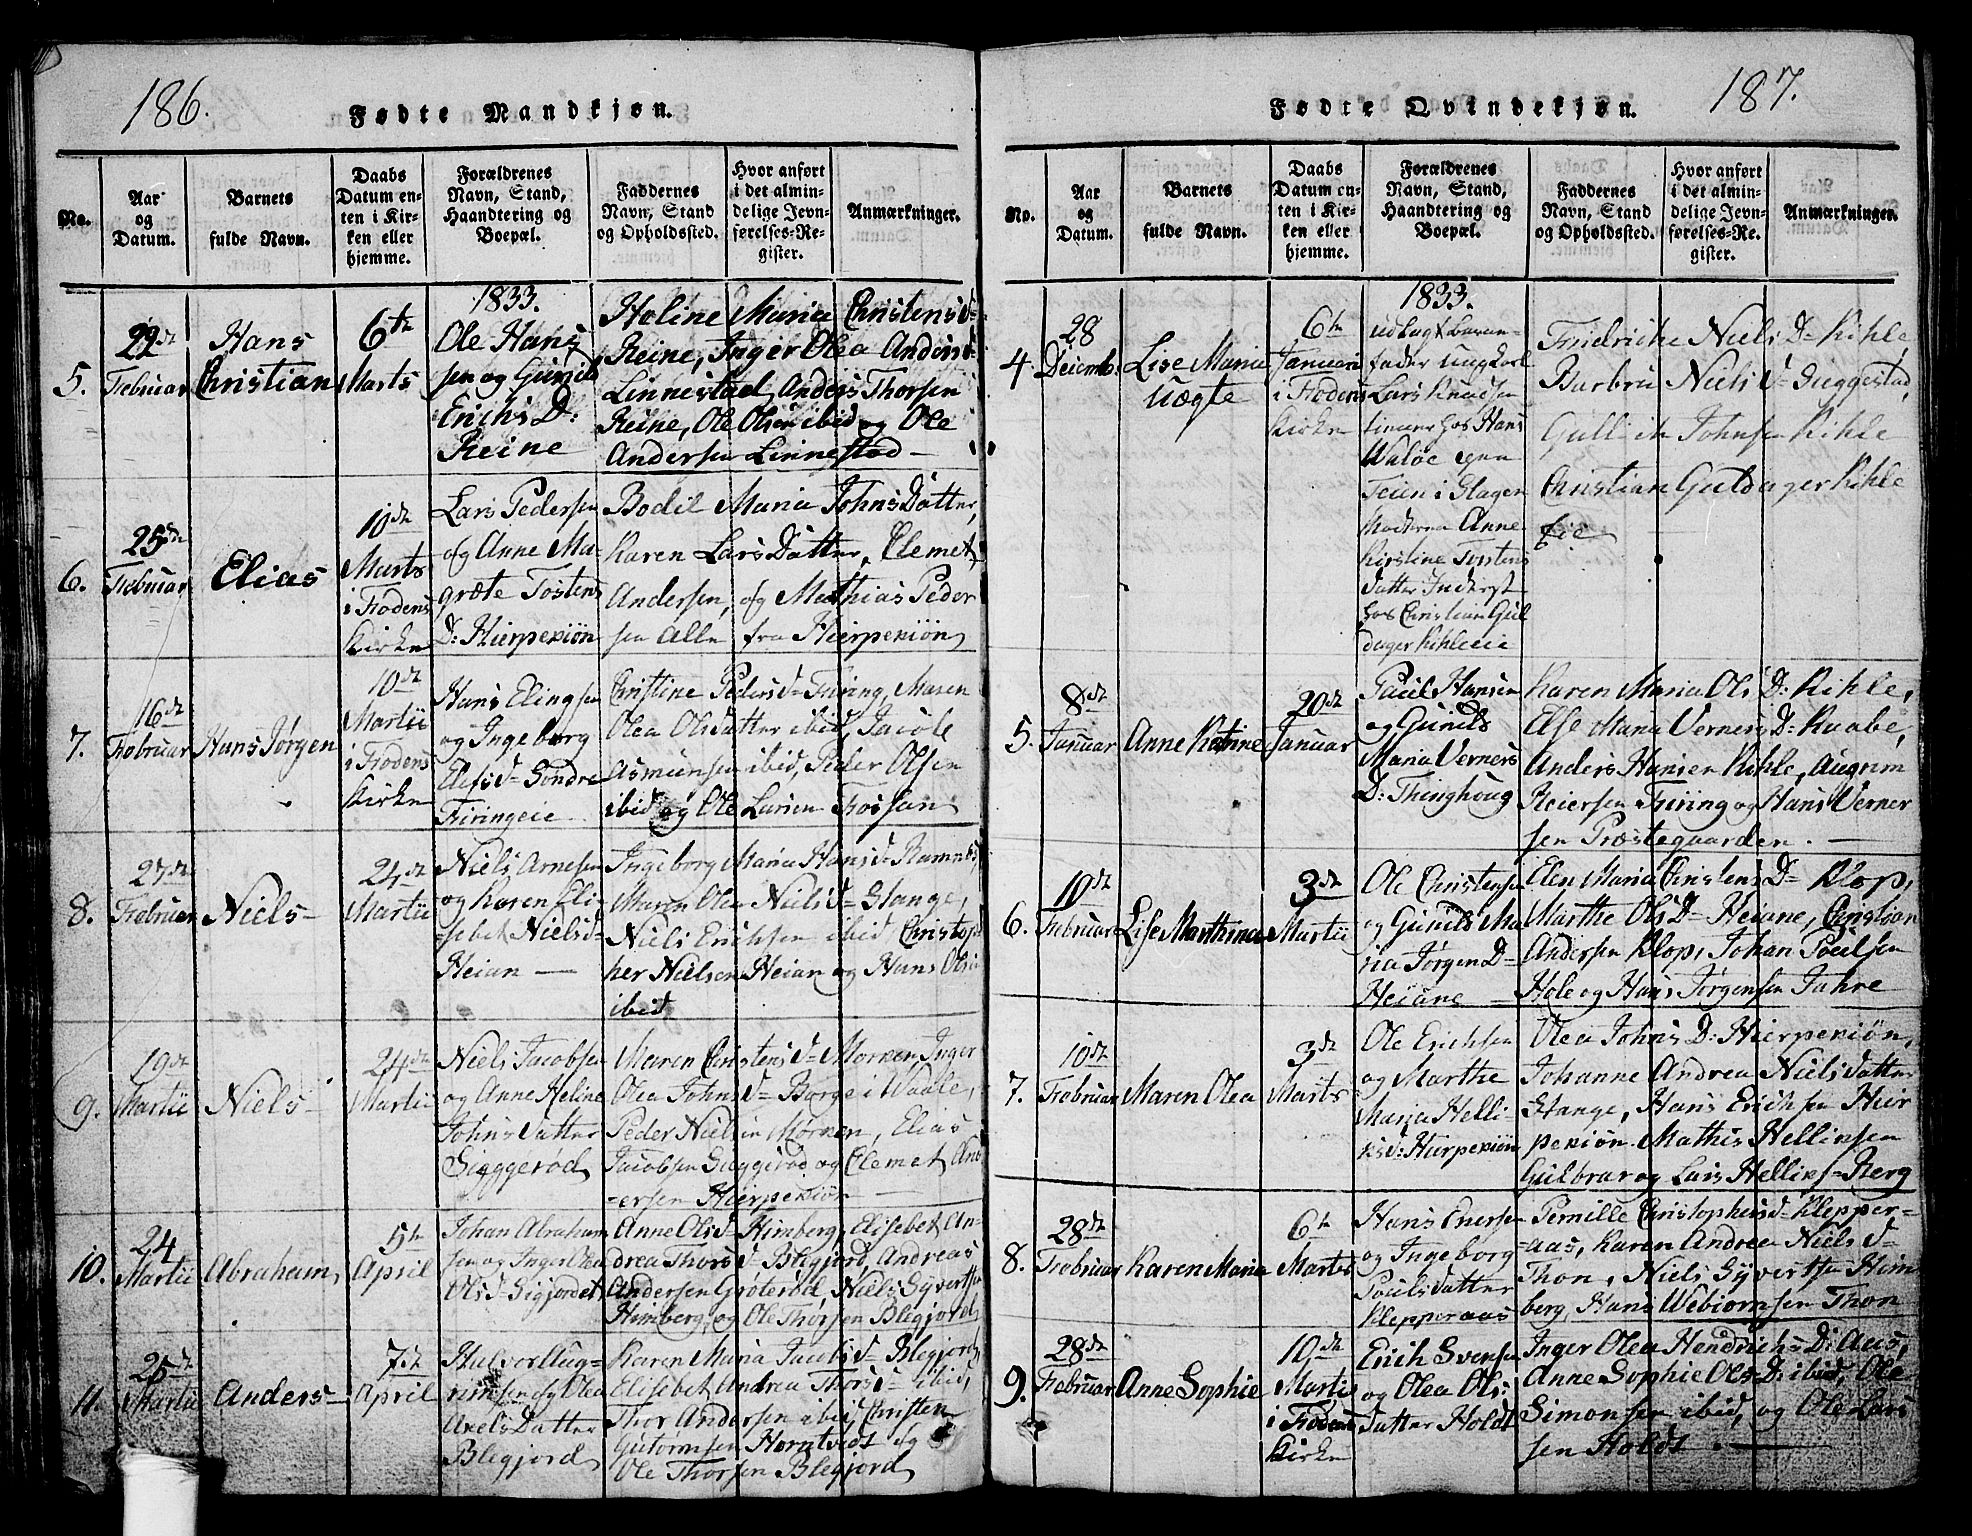 186.
Fødte Mandkjøn.
No.
Aar
og
Datum.
Barnets
fulde Navn.
Daabs
Datum en-
ten i Kir-
ken eller
hjemme.
Forældrenes
Navn, Stand,
Haandtering og
Boepæl.
Faddernes
Navn, Stand
og Opholdssted.
Hvor anført
i det almin-
delige Jevn-
førelses-Re-
gister.
Anmærkninger.
1833.
5.
22de
Februar
Hans
Christian
6te
Marts
Ole Hans
sen og Gunild
Erichs D:
Reine
Holine Maria Christens d=
Reine, Inger Olea Anders d=
Linnestad, Anders Thorsen
Reine, Ole Olsen ibid og Ole
Andersen Linnestad -
6.
25de
Februar
Elias
10de
Marts
i Frodens
Kirke
Lars Pedersen
og Anne Ma-
grete Tostens
D: Hierpekiøn
Bodil Maria Johns Datter,
Karen Lars Datter, Clemet
Andersen, og Mathias Peder
sen alle fra Hierpekiøn
7.
16de
Februar
Hans Jørgen
10de
Martii
i Frodens
Kirke
Hans Elingsen
og Ingeborg
Elefs d= Søndre
Firingeie
Christine Peders d= Firing, Maren
Olea Olsdatter ibid, Jacob
Asmunsen ibid, Peder Olsen
ibid og Ole Larsen Fossan
8.
27de
Februar
Niels-
24de
Martii
Niels Arnesen
og Karen Eli-
sebet Niels d=
Heian -
Ingeborg Maria Hans d= Ramnes,
Maren Olea Niels d= Stange,
Niels Erichsen ibid Christop
her Nielsen Heian og Hans Olsen
ibid
9.
19de
Martii
Niels
24de
Martii
Niels Jacobsen
og Anne Heline
Johns Datter
Siggerød
Maren Christens d= Mørken, Inger
Olea Johns d= Borge i Waale,
Peder Nielsen Mørken, Elias
Jacobsen Siggerød og Clemet And
=ersen Hierpekiøn -
10.
24
Martii
Abraham,
5te
April
Johan Abraham
sen og Inger Olea
Ols d= Sigjordet
Anne Ols d= Himberg, Elisebet An-
drea Thors d= Blegjord, Andreas
Andersen Grøterød Niels Syvertsen
Himberg, og Ole Thorsen Blegjord
11.
25de
Martii
Anders-
7de
April
Halvor Aug-
rimsen og Olea
Axels Datter
Blegjord
Karen Maria Jacobs d= Blegjord,
Elisebet Andrea Thors d= ibid,
Thor Andersen ibid, Christen
Gutormsen Horntvedt og
Ole Thorsen Blegjord
187.
Fødte Qvindekjøn.
No.
Aar
og
Datum.
Barnets
fulde Navn.
Daabs
Datum en-
ten i Kir-
ken eller
hjemme.
Forældrenes
Navn, Stand,
Haandtering og
Boepæl.
Faddernes
Navn, Stand
og Opholdssted.
Hvor anført
i det almin-
delige Jevn-
førelses-Re-
gister.
Anmærkninger.
1833.
4
28
Decemb.
Lise Maria
Uægte
6te
Januari
i Frodens
Kirke
udlagt Barne-
fader ungkarl
Lars Knudsen
tiener hos Hans
Waløe
Teien i Slagen
Moderen Anne
Kirstine Tostens
datter Inderst
hos Christian Gul
dager Kihleeie
Fridriche Niels D= Kihle,
Barbru Niels d= Suggestad,
Gullich Johnsen Kihle
Christian Guldager Kihle
Eie -
5.
8de
Januar
Anne Katrine
20de
Januar
Paul Hansen
og Gunild
Maria Verners
D: Thinghoug
Karen Maria Ols D: Kihle,
Else Maria Verners D: Raabe,
Anders Hansen Kihle, Augrim
Reiersen Firing og Hans Verner
sen Præstegaarden. -
6.
10de
Februar
Lise Marthina
3de
Martii
Ole Christensen
og Gunild Ma
ria Jørgen D=
Heiane
Elen Maria Christens D= Klop,
Marthe Ols D= Heiane, Christian
Andersen Klop, Johan Paulsen
Hole og Hans Jørgensen Jahre
7.
10de
Februar
Maren Olea
3de
Marts
Ole Erichsen
og Marthe
Maria Helli-
ks d: Hierpekiøn
Olea Johns D: Hierpekiøn,
Johanne Andrea Niels Datter
Stange, Hans Erichsen Hier
pekiøn. Mathis Hellinsen
Gulbrar og Lars Hellins= Berg
8.
28de
Februar
Karen Maria
6te
Marts
Hans Enersen
og Ingeborg
Pouls datter
Klepperaas
Pernille Christophers d= Klepper-
=aas, Karen Andrea Niels d=
Thon, Niels Syvertsen Him
berg, Hans Webiørnsen Thon
9.
28de
Februar
Anne Sophie
10de
Martii
i Frodens
Kirke
Erich Svensen
og Olea Ols:
Datter Holdt
Inger Olea Hendrichs D: Aas,
Anne Sophie Ols D: ibid, Ole
Simonsen ibid, og Ole Lars
sen Holdt. -